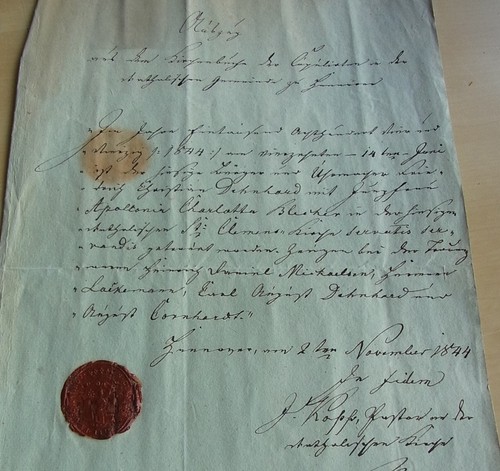 Auszug
aus dem Kirchenbuche der Copulirten der
katholischen Gemeinde zu Hannover
„Im Jahre Eintausend Achthundert Vier und
„Vierzig /: 1844 :/ am vierzehnten - 14ten Juni
„ist der hiesige Bürger und Uhrmacher Frie-
„drich Christian Dehnhard mit Jungfrau
„Apollonia Charlotta Blecker in der hiesigen
„katholischen St: Clemens-Kirche servatis ser-
„vandis getraut worden. Zeugen bei der Trauung
„waren Heinrich Daniel Michaelsen, Hermann
„Lackemann, Carl August Dehnhard und
„August Cornhardt.“
Hannover, am 2ten November 1844
In fidem
J. Kopp, Pastor an der
katholischen Kirche